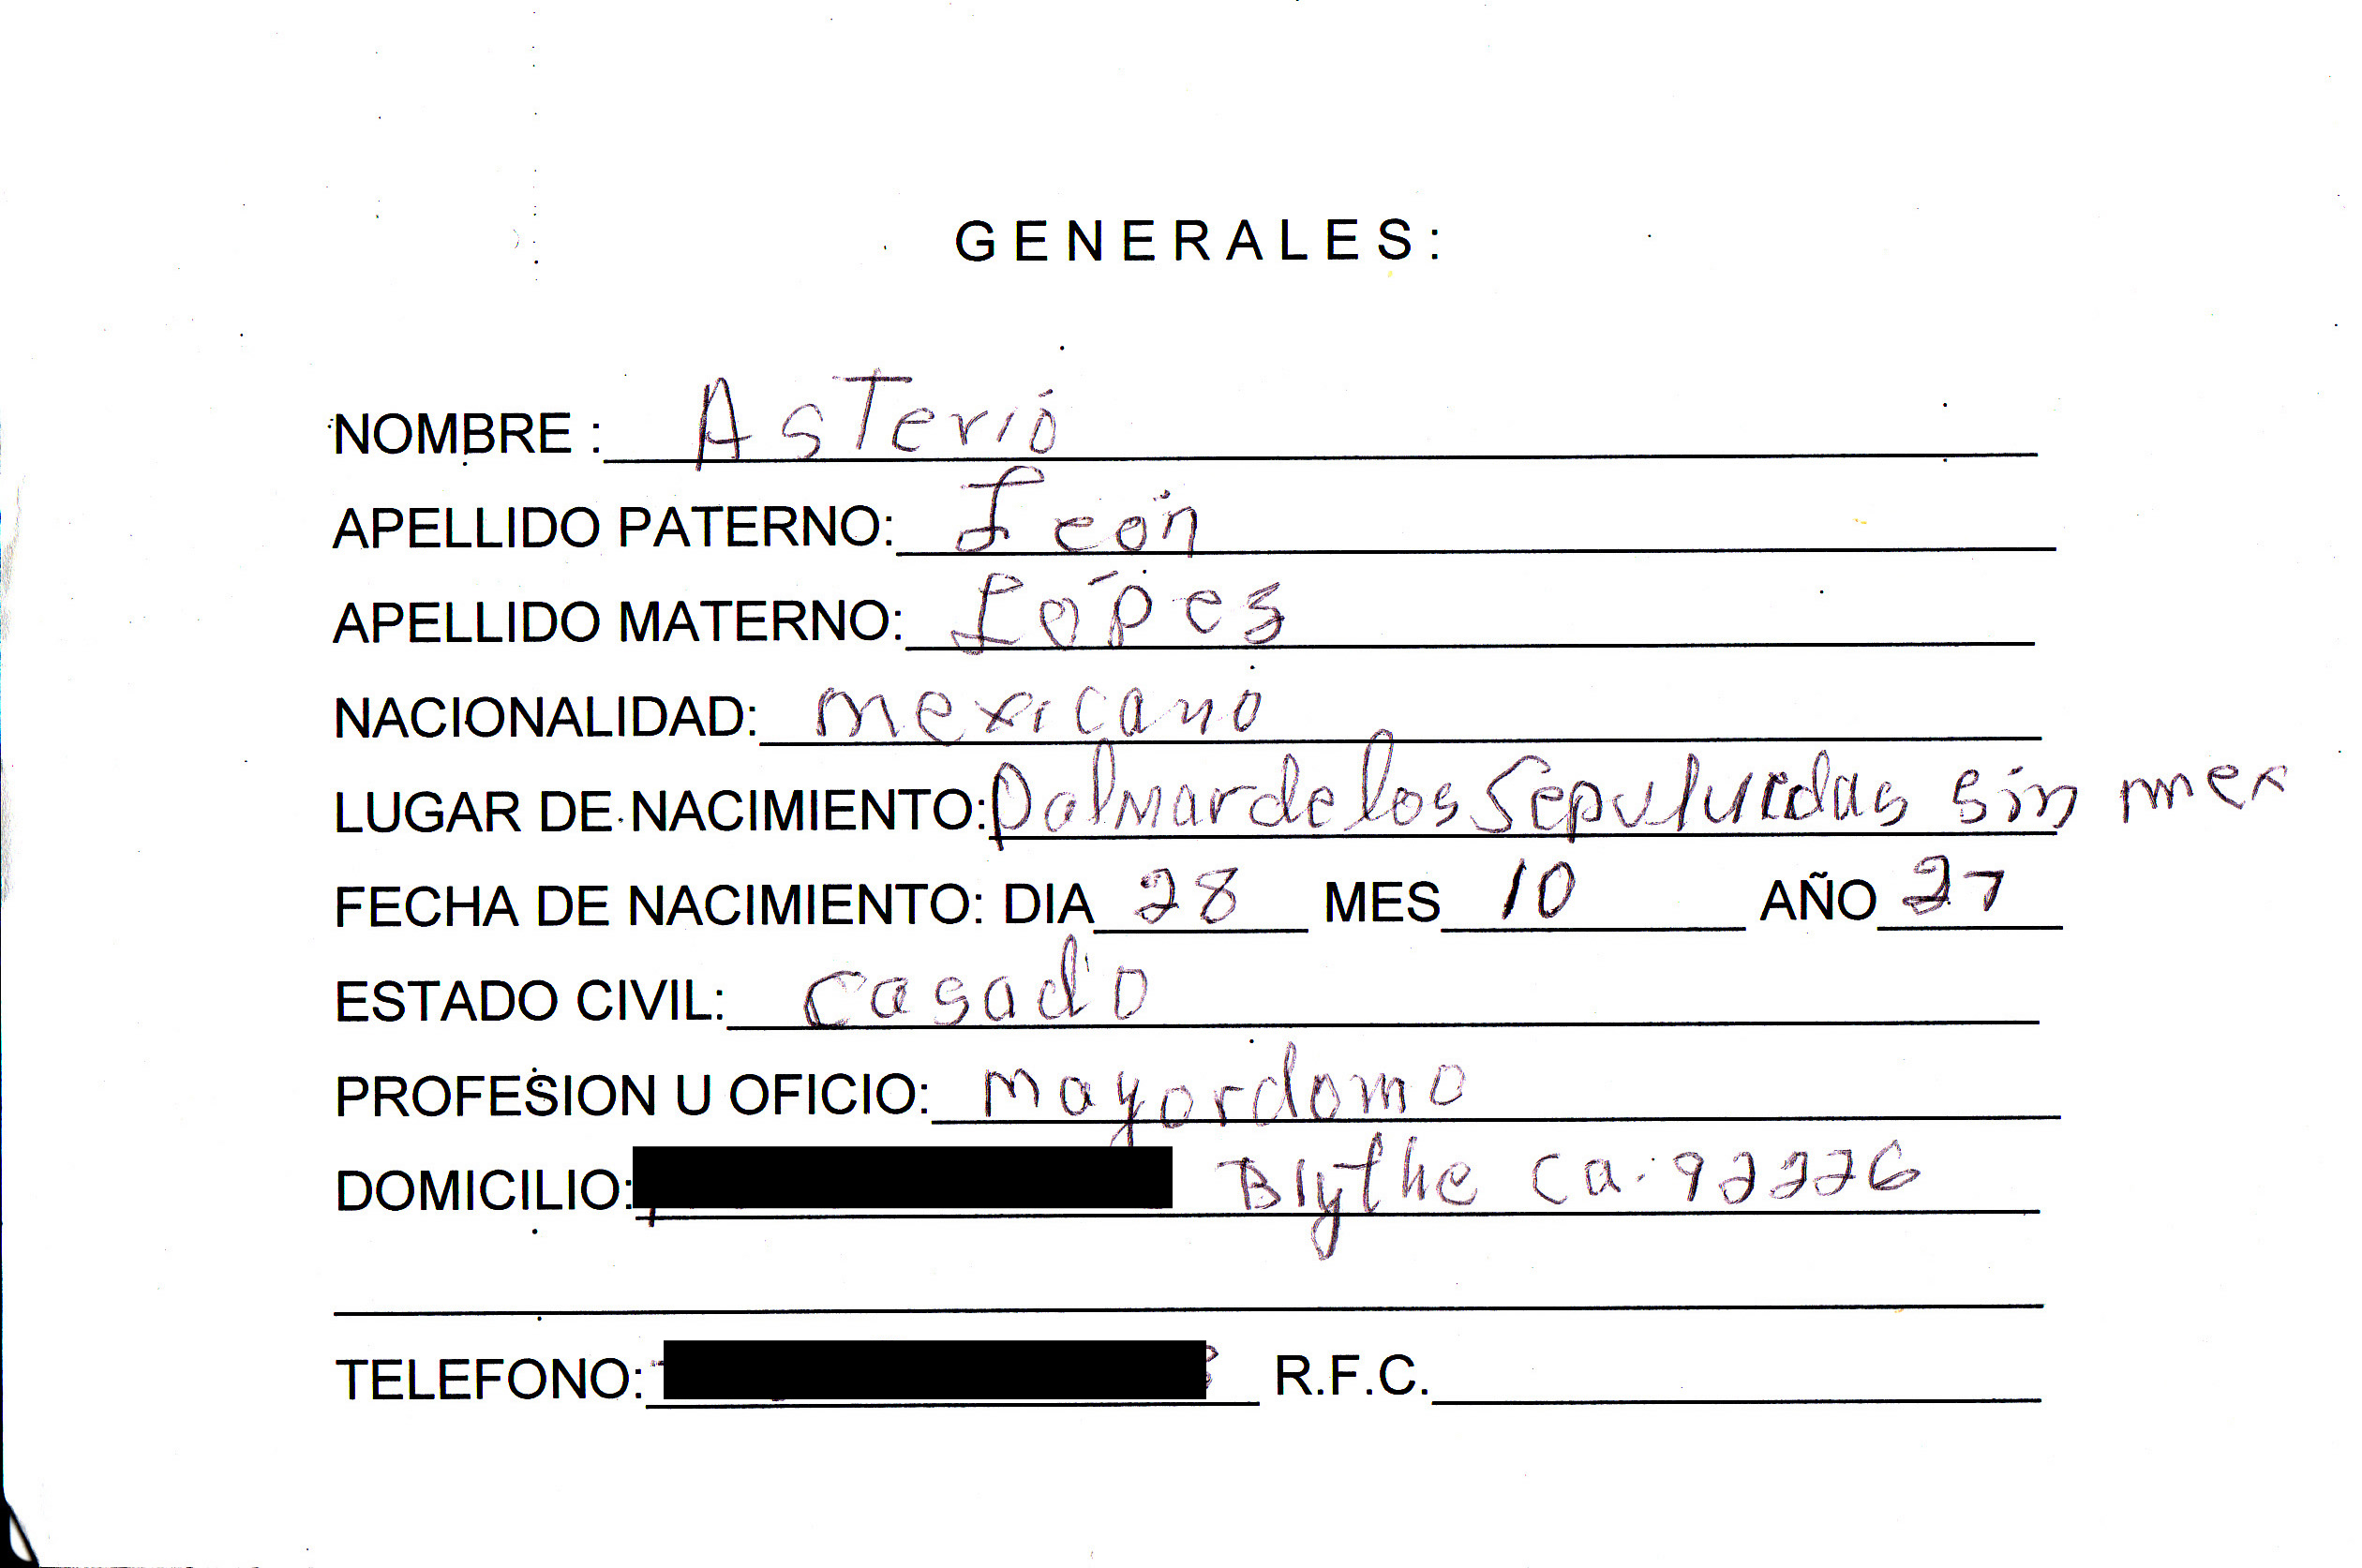 GENERALES:
NOMBRE : Asterió
APELLIDO PATERNO: León
APELLIDO MATERNO: Lópes
NACIONALIDAD: mexicano
LUGAR DE NACIMIENTO: Palmar de los Sepulvedas sin mex
FECHA DE NACIMIENTO: DIA 28 MES 10 AÑO 27
ESTADO CIVIL: casado
PROFESION U OFICIO: mayordomo
DOMICILIO: Blythe ca. 92226
TELEFONO: R.F.C.